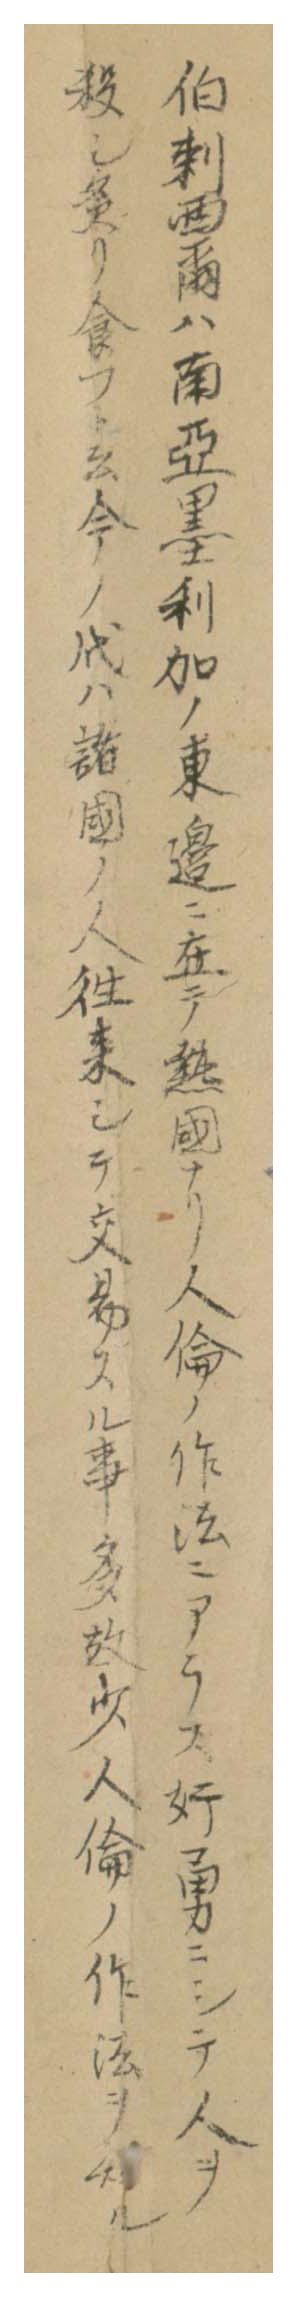 伯剌西爾ハ南亞墨利加ノ東邉ニ在テ熱國ナリ人倫ノ作法ニアラス奸勇ニシテ人ヲ
殺シ炙リ食フト云今ノ代ハ諸國ノ人往来シテ交易スル事多故少人倫ノ作法ヲ知ル